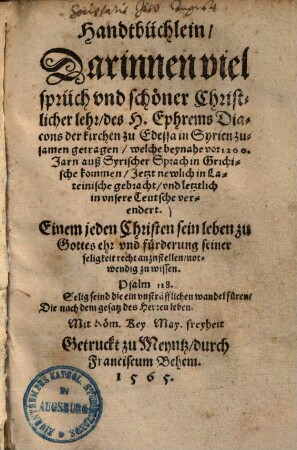 Societatis Jesu
Handtbüchlein/
Darinnen viel
sprüch vnd schöner Christ-
licher lehr/ des H. Ephrems Dia-
cons der kirchen zu Edessa in Syrien zu-
samen getragen/ welche beynahe vor 1200.
Jarn auß Syrischer Sprach in Grichi-
sche kommen/ Jetzt newlich in La-
teinische gebracht/ vnd letztlich
in vnsere Teutsche ver-
endert.
Einem jeden Christen sein leben zu
Gottes ehr vnd fürderung seiner
seligkeit recht anzustellen/ not-
wendig zu wissen.
Psalm 118.
Selig seind die ein vnsträfflichen wandel füren/
Die nach dem gesatz des Herren leben.
Mit Röm. Key. May. freyheit
Getruckt zu Meyntz/ durch
Franciscum Behem.
1565.
EIGENTHUM DES KATHOL. STUDIENFONDS
IN
AUGSBURG